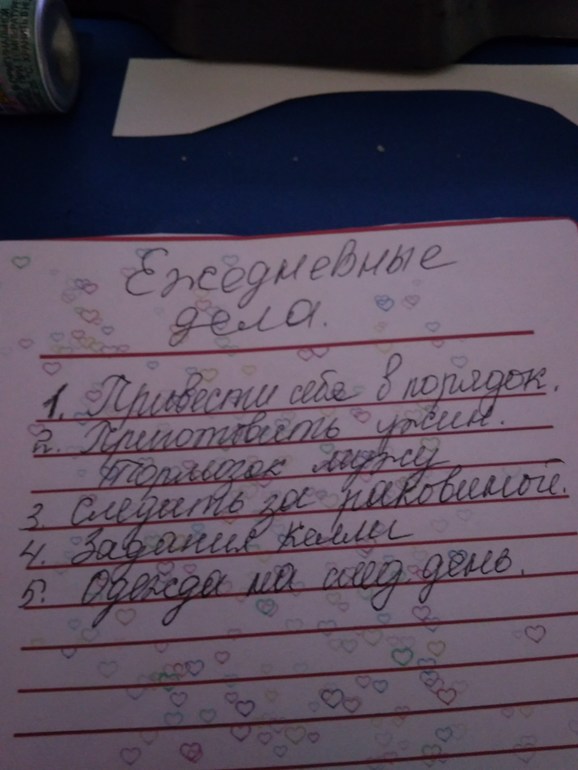 Ежедневные
дела.
1. Привести себя в порядок.
2. Приготовить ужин.
Тормозок мужу
3. Следить за раковиной.
4. Задания Келли
5. Одежда на след день.